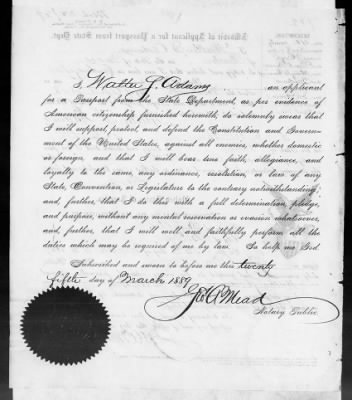 I, Walter J. Adams an applicant
for a Passport from the State Department, as per evidence of
American citizenship furnished herewith, do solemnly swear that
I will support, protect, and defend the Constitution and Govern-
ment of the United States, against all enemies, whether domestic
or foreign, and that I will bear true faith, allegiance, and
loyalty to the same, any ordinance, resolution, or law of any
State, Convention, or Legislature to the contrary notwithstanding;
and, further, that I do this with a full determination, pledge,
and purpose, without any mental reservation or evasion whatsoever,
and, further, that I will well and faithfully perform all the
duties which may be required of me by law. So help me God.
Subscribed and sworn to before me this twenty
fifth day of March 1889
Geo A. Mead
Notary Public.